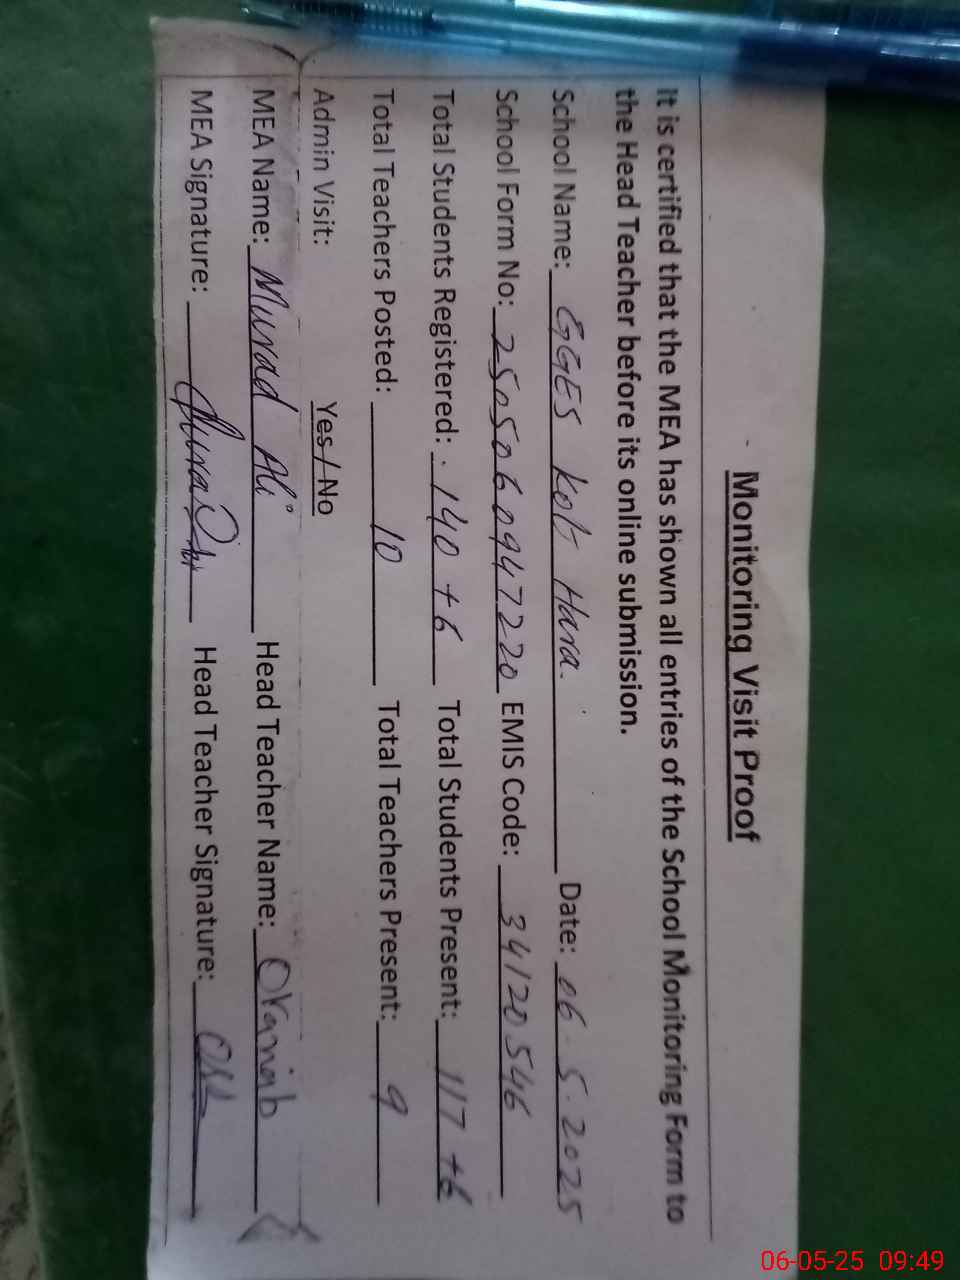 Monitoring Visit Proof
It is certified that the MEA has shown all entries of the School Monitoring Form to
the Head Teacher before its online submission.
School Name: GGES Kot Hara. Date: 06-5-2025
School Form No: 2505060947220 EMIS Code: 34120546
Total Students Registered: 140 + 6 Total Students Present: 117 + 6
Total Teachers Posted: 10 Total Teachers Present: 9
Admin Visit: Yes / No
MEA Name: Murad Ali Head Teacher Name:
MEA Signature: Head Teacher Signature:
06-05-25 09:49